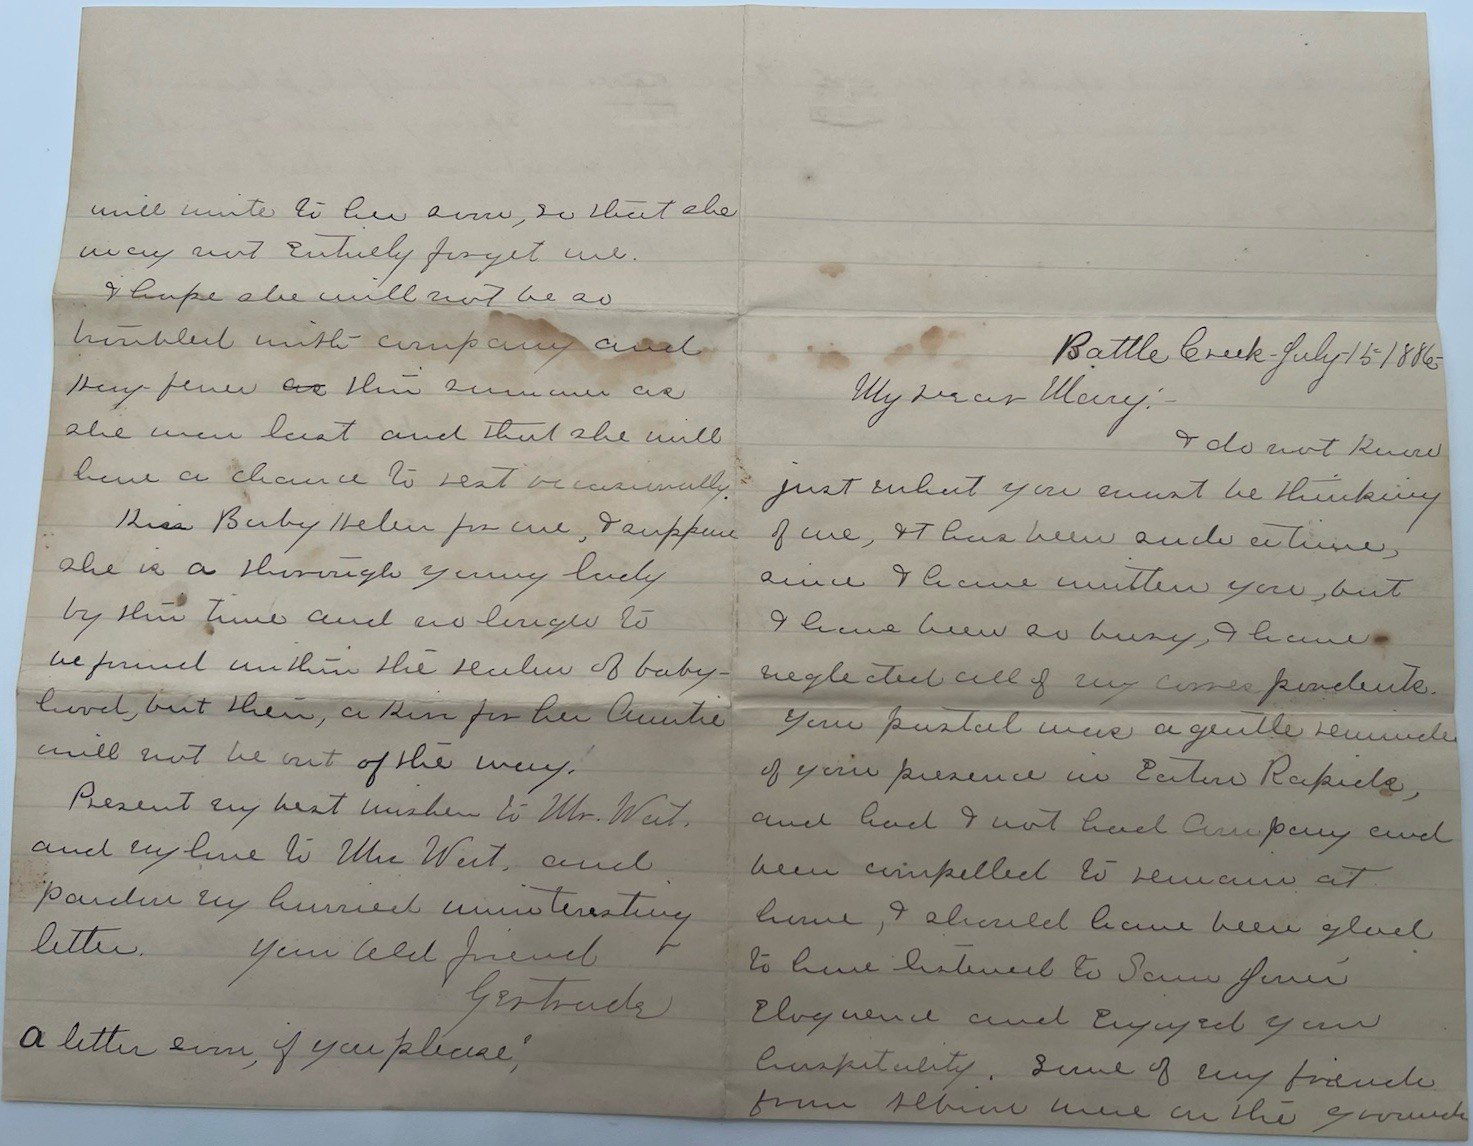 Battle Creek - July 15 1886
My dear Mary:-
I do not know
just what you must be thinking
of me, It has been such a time,
since I have written you, but
I have been so busy, I have
neglected all of my correspondents.
Your postal was a gentle reminder
of your presence in Eaton Rapids,
and had I not had company and
been compelled to remain at
home, I should have been glad
to have listened to Sam Jones'
eloquence and enjoyed your
hospitality. Some of my friends
from Albion were on the grounds
will write to her soon, so that she
may not entirely forget me.
I hope she will not be so
troubled with company and
Hay-fever as this summer as
she was last and that she will
have a chance to rest occasionally.
Kiss Baby Helen for me, I suppose
she is a thorough young lady
by this time and no longer to
be found within the realm of baby-
hood, but then, a kiss for her Auntie
will not be out of the way.
Present my best wishes to Mr. West.
and my love to Mrs West. and
pardon my hurried uninteresting
letter. Your old friend
Gertrude
A letter soon, if you please!